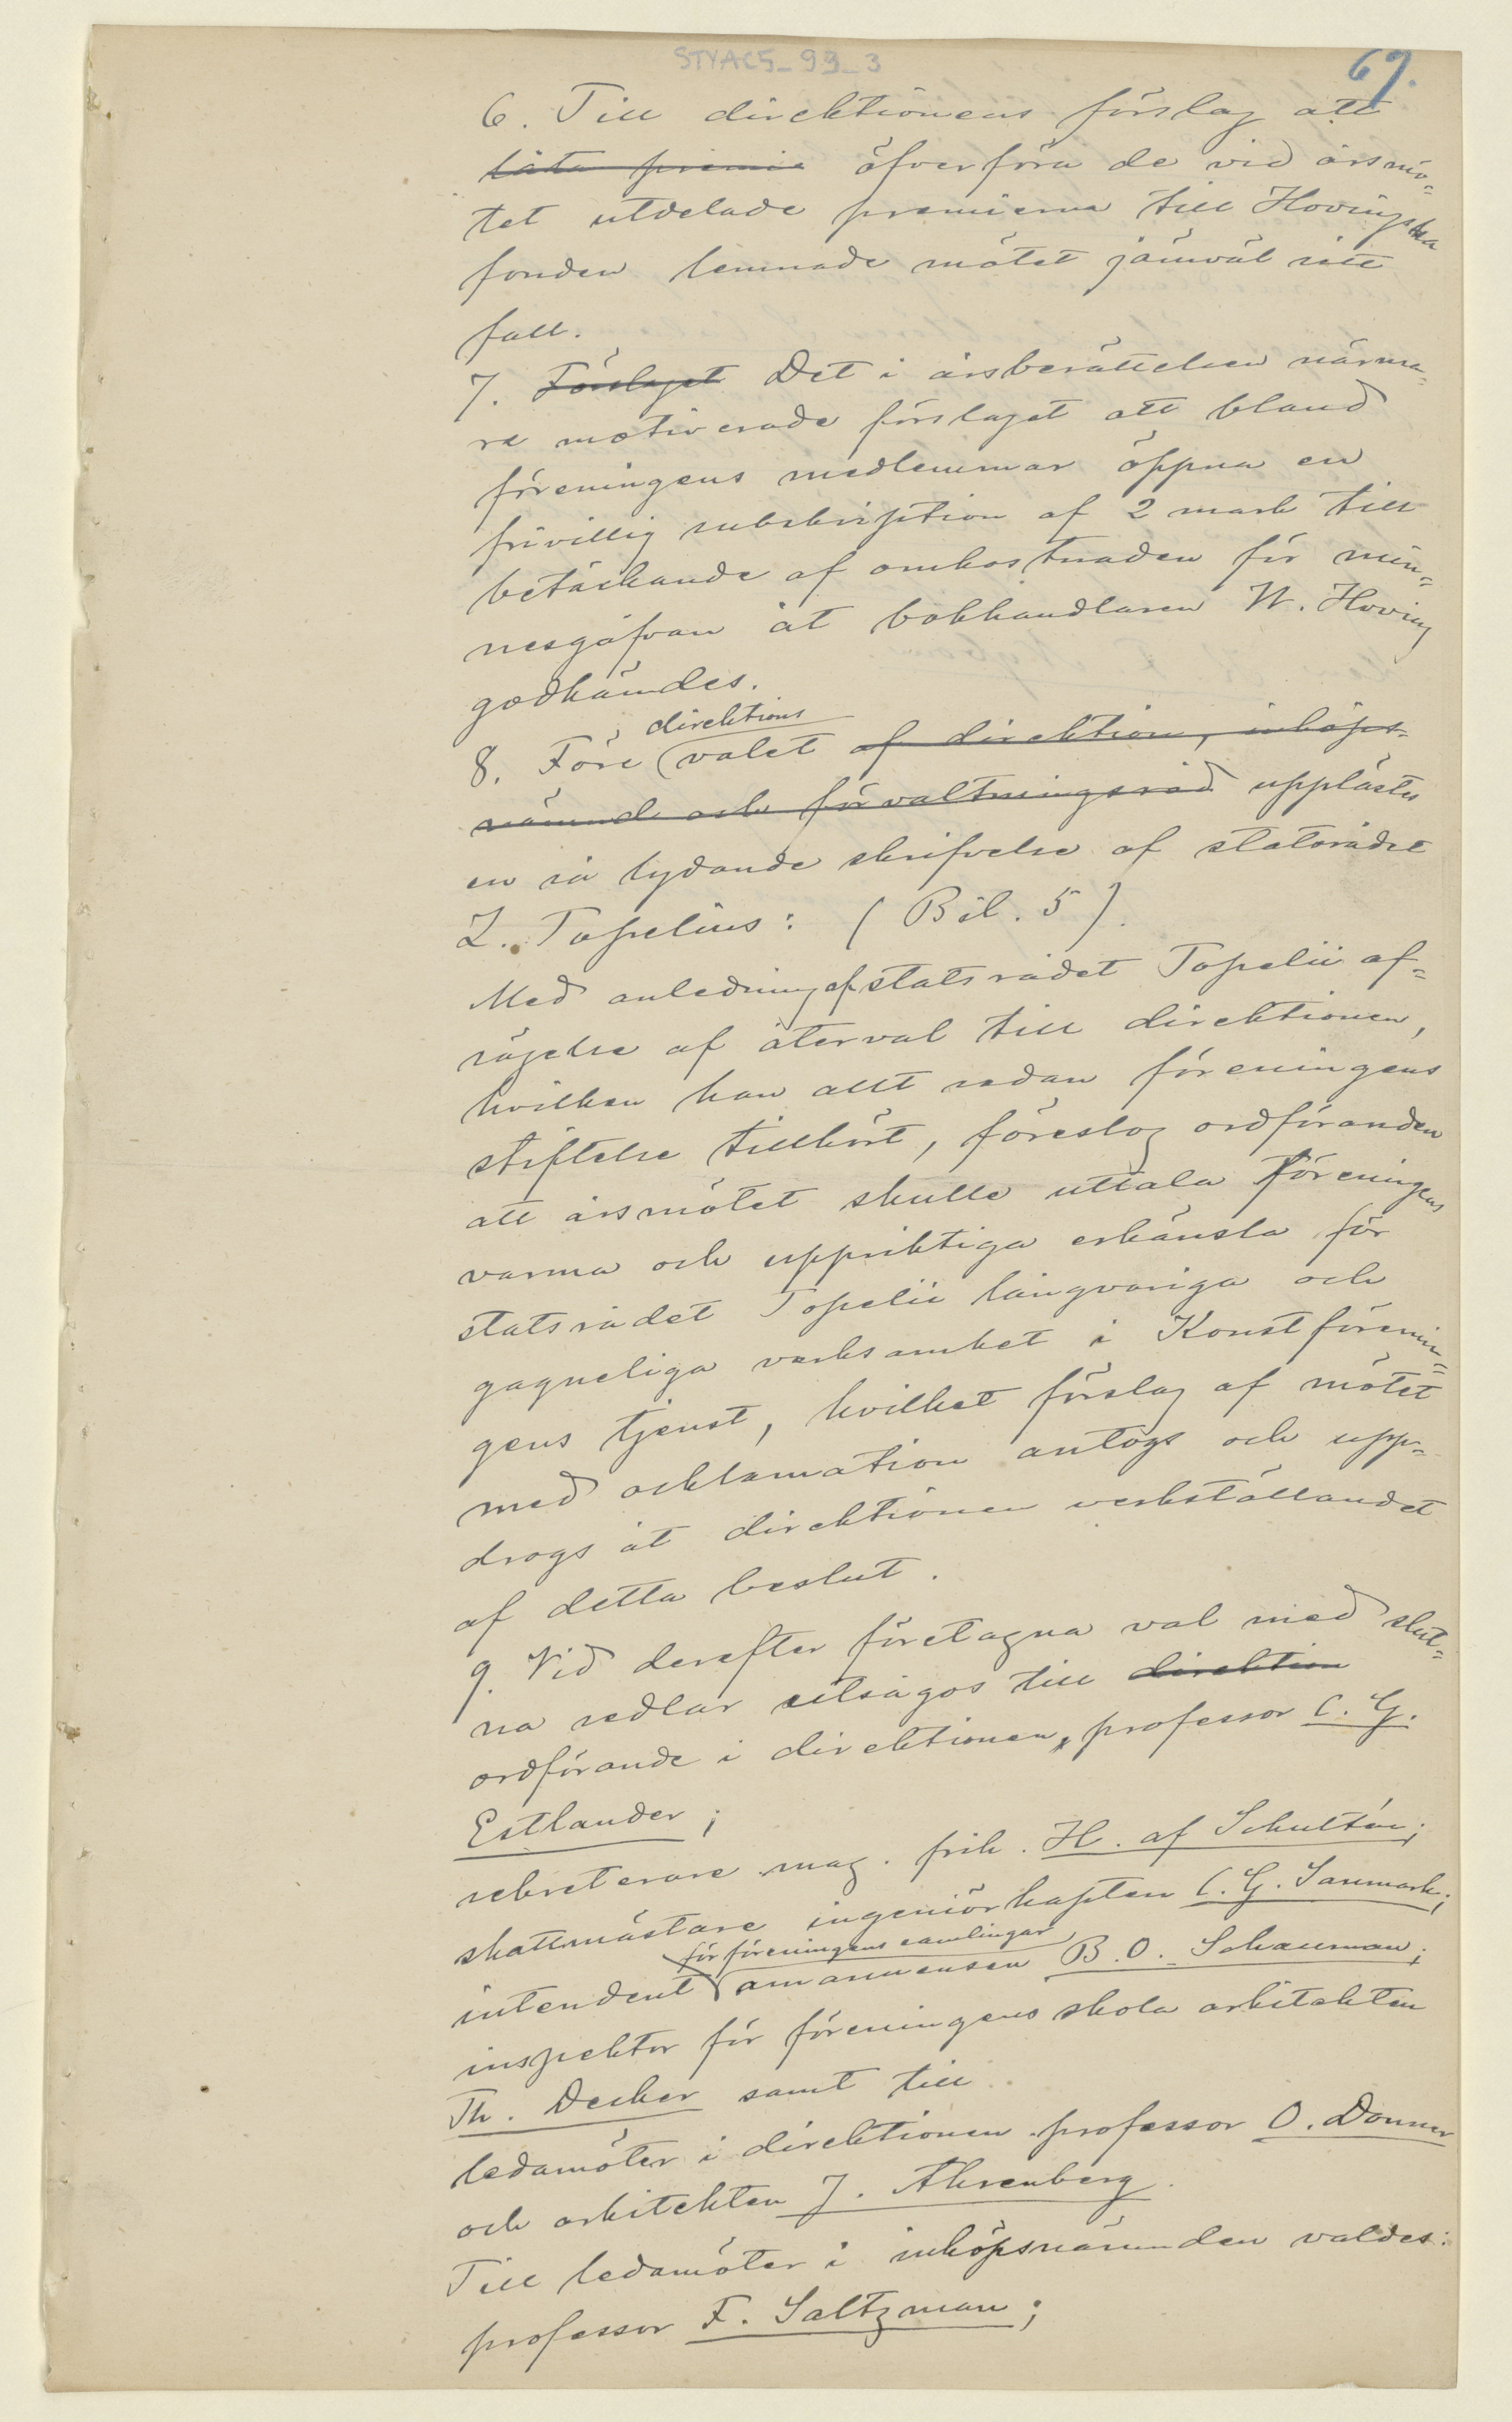 STYAC5_99_3
69.
6. Till direktionens förslag att
låta premie öfverföra de vid årsmö-
tet utdelade premierna till Hovingska
fonden lemnade mötet jämväl sitt
fall.
7. Förslaget Det i årsberättelsen närma-
re motiverade förslaget att bland
föreningens medlemmar öppna en
frivillig subskription af 2 mark till
betäckande af omkostnaden för min-
nesgåfvan åt bokhandlaren W. Hoving
godkändes.
direktions
8. Före valet af direktion, inköps-
nämnd och förvaltningsråd upplästes
en så lydande skrifvelse af statsrådet
Z. Topelius: (Bil. 5).
Med anledning af statsrådet Topelii af-
sägelse af återval till direktionen,
hvilken han allt sedan föreningens
stiftelse tillhört, föreslog ordföranden
att årsmötet skulle uttala föreningens
varma och uppriktiga erkänsla för
statsrådet Topelii långvariga och
gagneliga verksamhet i Konstförenin-
gens tjenst, hvilket förslag af mötet
med acklamation antogs och upp-
drogs åt direktionen verkställandet
af detta beslut.
9. Vid derefter företagna val med slut-
na sedlar utsågos till direktion
ordförande i direktionen, professor C. G.
Estlander;
sekreterare mag. frih. H. af Schultén;
skattmästare ingeniörkapten C. G. Sanmark;
för föreningens samlingar
intendent amanuensen B. O. Schauman;
inspektor för föreningens skola arkitekten
Th. Decker samt till
ledamöter i direktionen professor O. Donner
och arkitekten J. Ahrenberg.
Till ledamöter i inköpsnämnden valdes:
professor F. Saltzman;